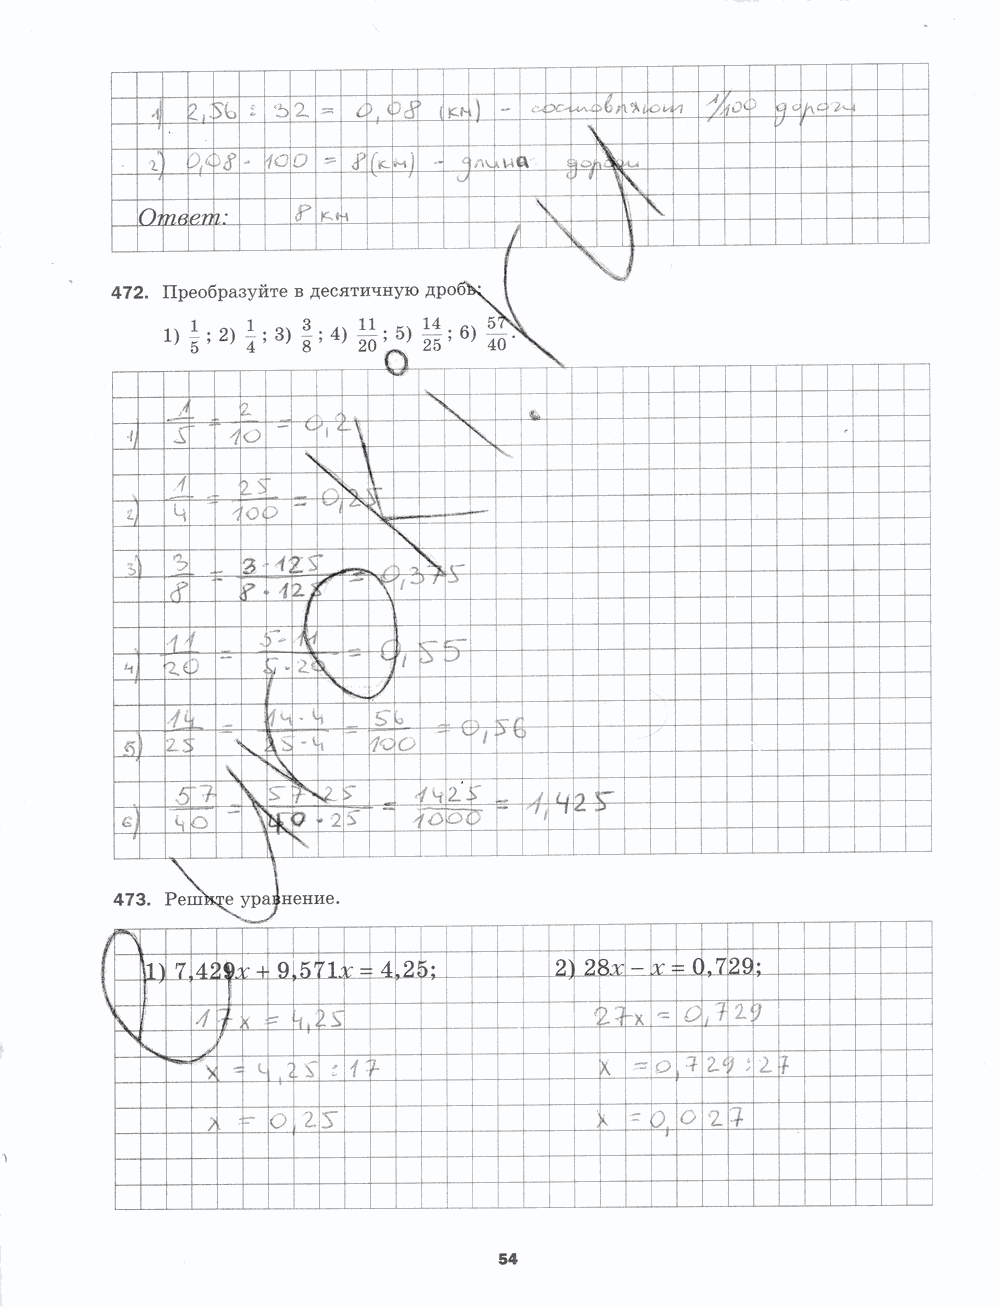 1) 2,56 : 32 = 0,08 (км) - составляют 1/100 дороги
2) 0,08 · 100 = 8 (км) - длина дороги
Ответ: 8 км
472. Преобразуйте в десятичную дробь:
1) 1/5; 2) 1/4; 3) 3/8; 4) 11/20; 5) 14/25; 6) 57/40.
1) 1/5 = 2/10 = 0,2
2) 1/4 = 25/100 = 0,25
3) 3/8 = 3·125/8·125 = 0,375
4) 11/20 = 5·11/5·20 = 0,55
5) 14/25 = 14·4/25·4 = 56/100 = 0,56
6) 57/40 = 57·25/40·25 = 1425/1000 = 1,425
473. Решите уравнение.
1) 7,429x + 9,571x = 4,25; 2) 28x – x = 0,729;
17x = 4,25 27x = 0,729
x = 4,25 : 17 x = 0,729 : 27
x = 0,25 x = 0,027
54